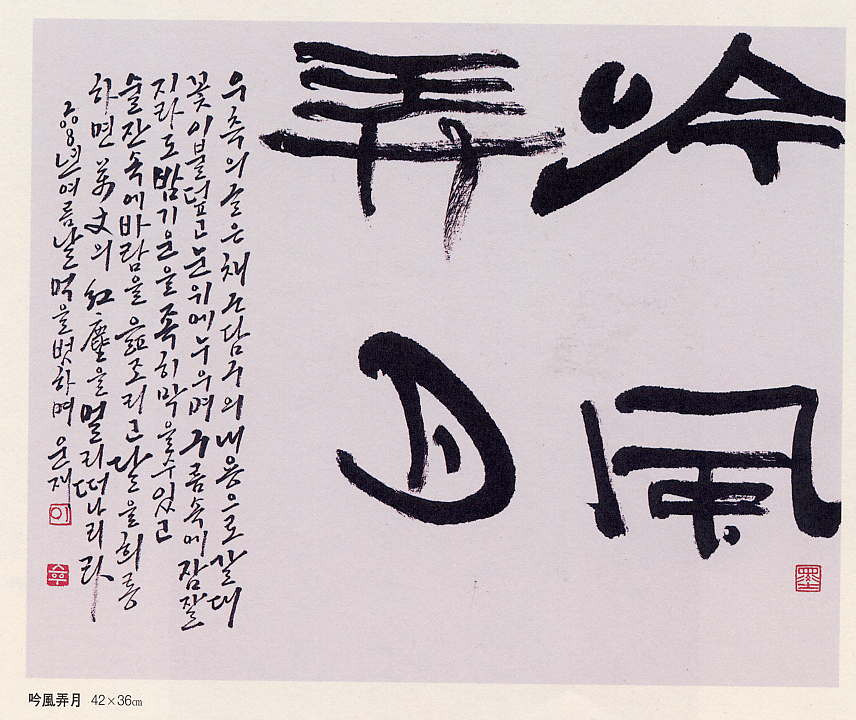 吟風
弄月
우측의 글은 채근담구의 내용으로 갈대
꽃 이불 덮고 눈 위에 누우며 구름속에 잠잘
지라도 밤기운을 족히 막을 수 있고
술잔 속에 바람을 읊조리고 달을 희롱
하면 萬丈의 紅塵을 멀리 떠나리라
2008년 여름날 먹을 벗하며 운재
吟風弄月 42×36㎝